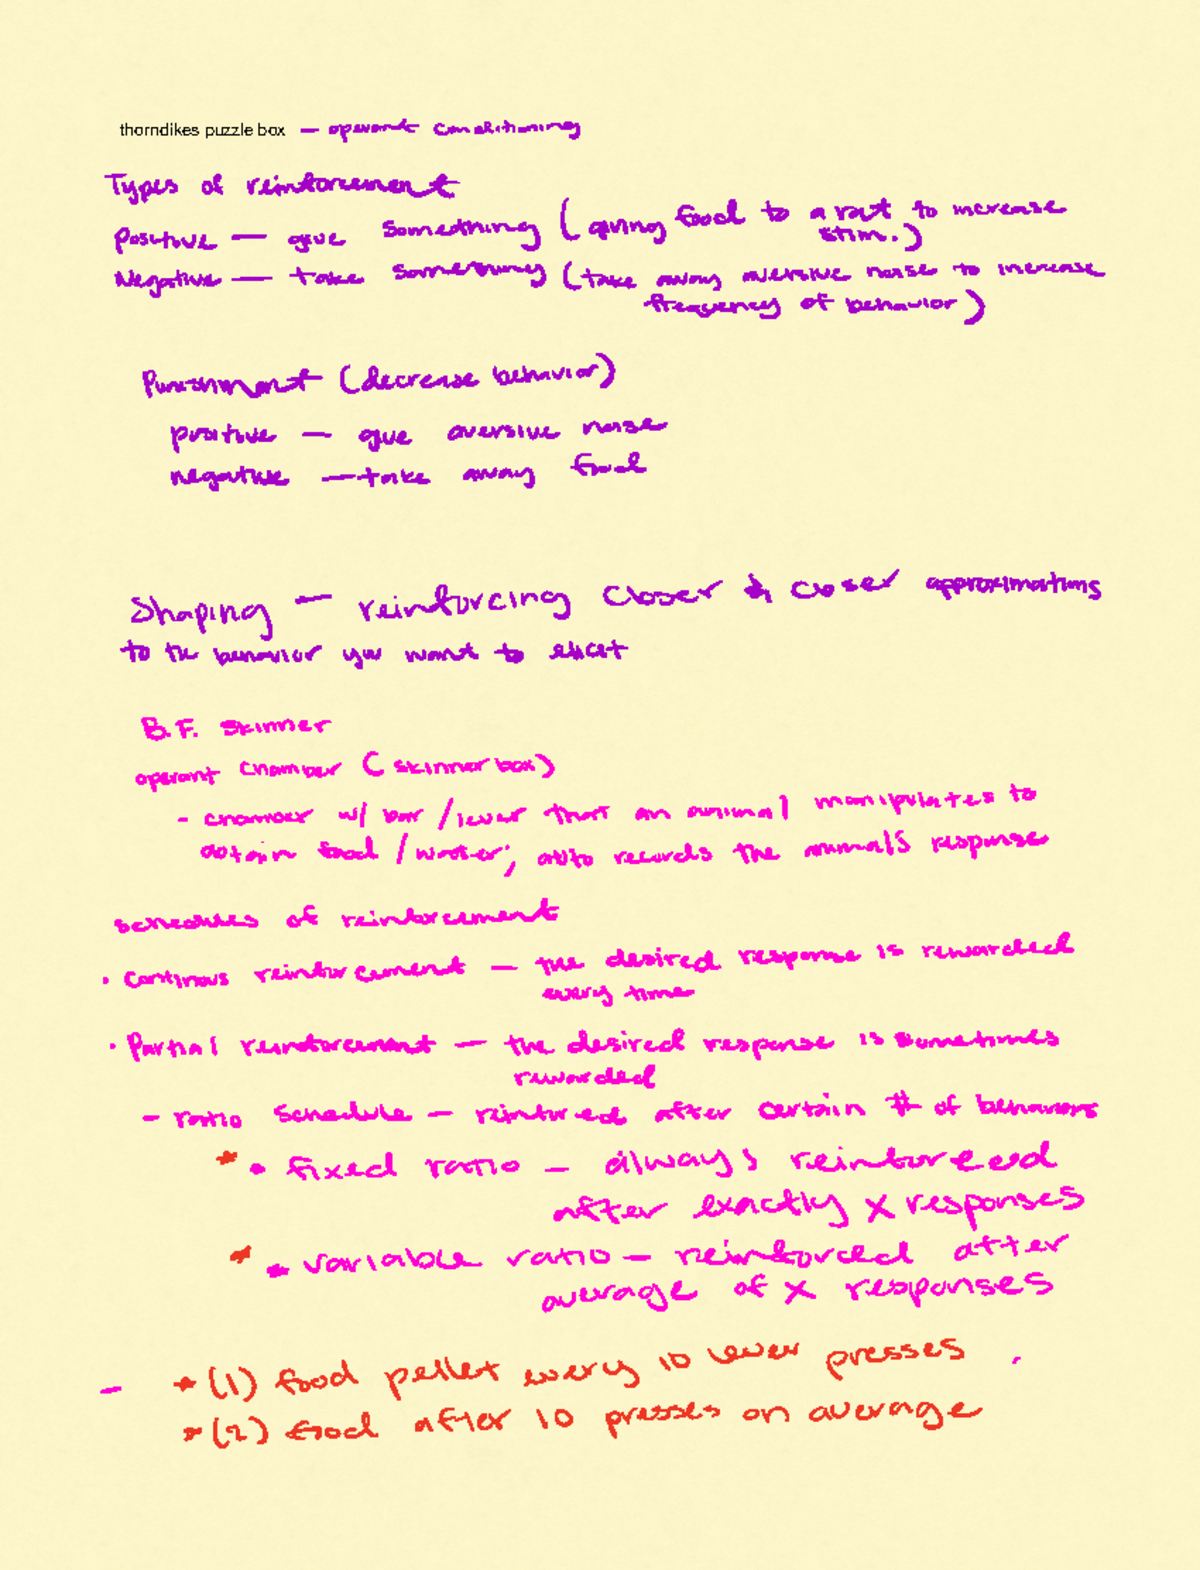 thorndikes puzzle box — operant conditioning
Types of reinforcement
positive — give something (giving food to a rat to increase
stim.)
Negative — take something (take away aversive noise to increase
frequency of behavior)
Punishment (decrease behavior)
positive — give aversive noise
negative — take away food
Shaping — reinforcing closer & closer approximations
to the behavior you want to elicit
B.F. Skinner
operant chamber (skinner box)
- chamber w/ bar / lever that an animal manipulates to
obtain food / water; auto records the animals response
schedules of reinforcement
• Continous reinforcement — the desired response is rewarded
every time
• Partial reinforcement — the desired response is sometimes
rewarded
- ratio schedule — reinforced after certain # of behaviors
* • fixed ratio — always reinforced
after exactly x responses
* • variable ratio — reinforced after
average of x responses
- * (1) food pellet every 10 lever presses
* (2) food after 10 presses on average